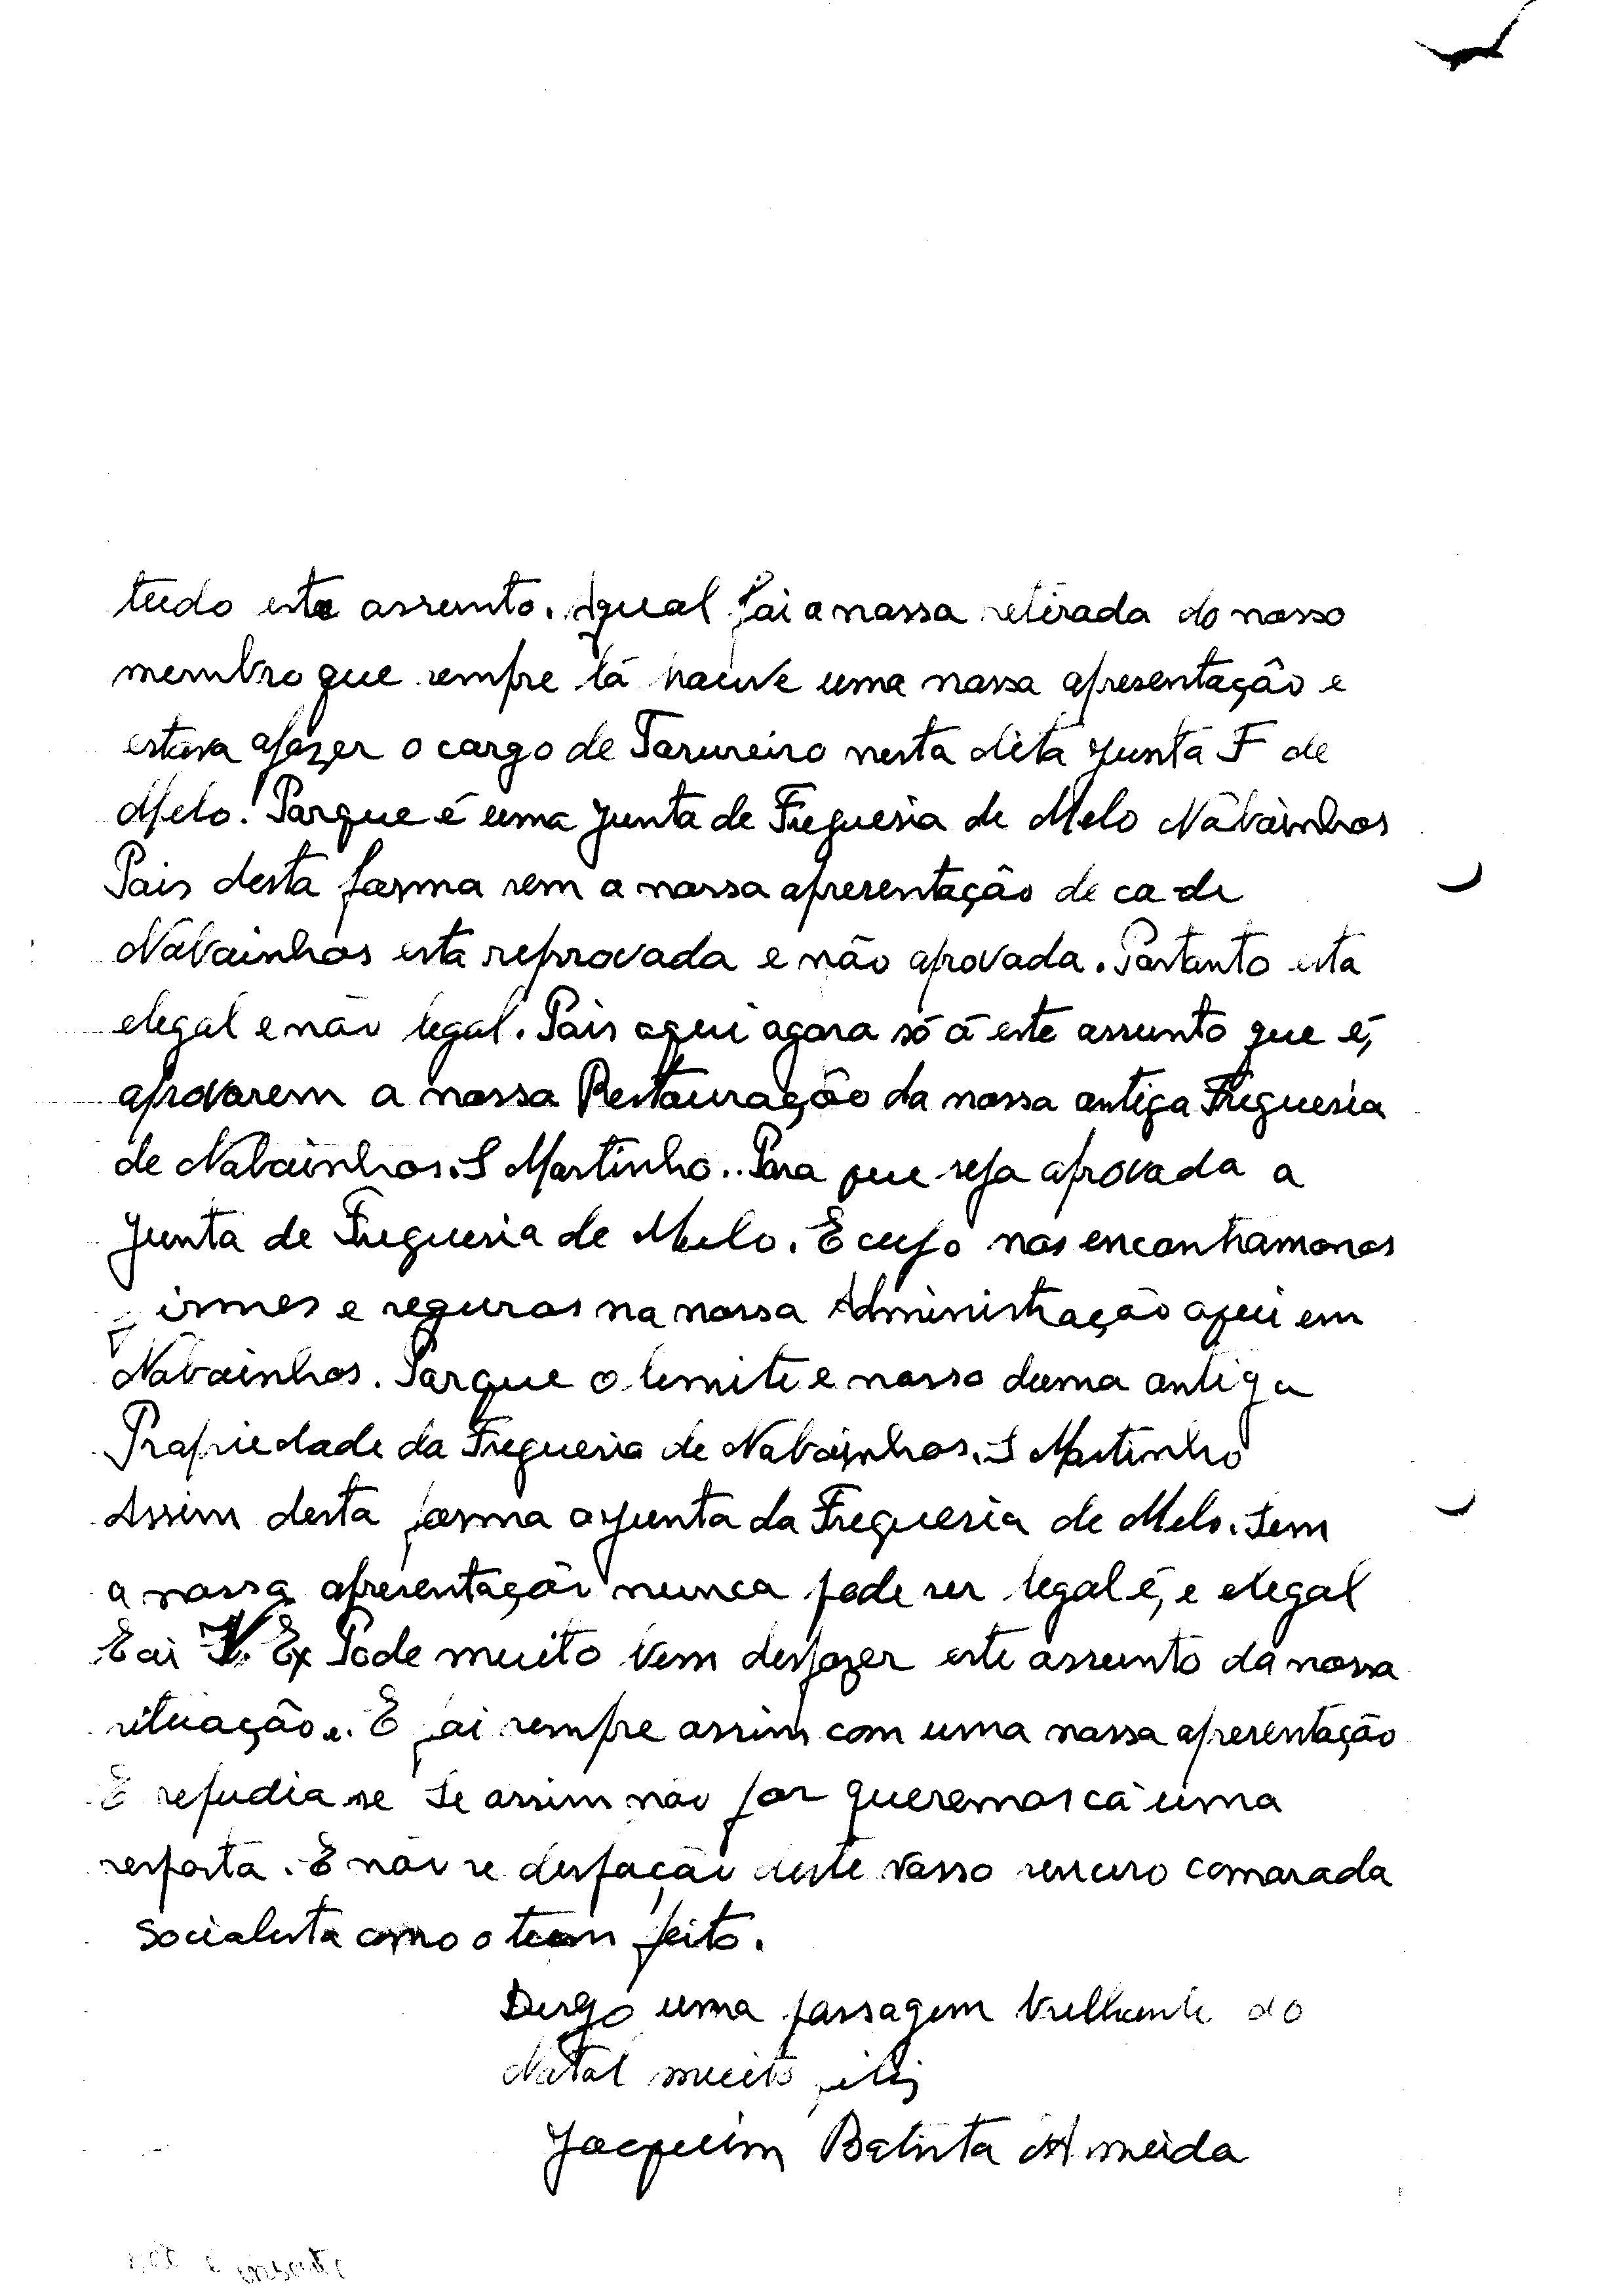 tudo este assunto. Aqual foi a nossa retirada do nosso
membro que sempre lá houve uma nossa apresentação e
estava afazer o cargo de Tarureiro nesta dita Junta F de
Melo. Porque é uma Junta de Freguesia de Melo Nabainhos
Pois desta forma sem a nossa apresentação de ca de
Nabainhos esta reprovada e não aprovada. Portanto esta
elegal e não legal. Pois aqui agora só á este assunto que é,
aprovarem a nossa Restauração da nossa antiga Freguesia
de Nabainhos. S Martinho.. Para que seja aprovada a
Junta de Freguesia de Melo. E cujo nos encontramonos
firmes e seguros na nossa Administração aqui em
Nabainhos. Porque o lemite e nosso duma antiga
Propriedade da Freguesia de Nabainhos. S Martinho
Assim desta forma a Junta da Freguesia de Melo. Sem
a nossa apresentação nunca pode ser legal é, e elegal
E ai V. Ex Pode muito bem desfazer este assunto da nossa
situação. E foi sempre assim com uma nossa apresentação
E refudia se Se assim não for queremos cá uma
resposta. E não se desfação deste vosso senсero camarada
Socialista como o team feito.
Dergo uma passagem brelhante do
Natal muito feliz
Joaquim Batista Almeida